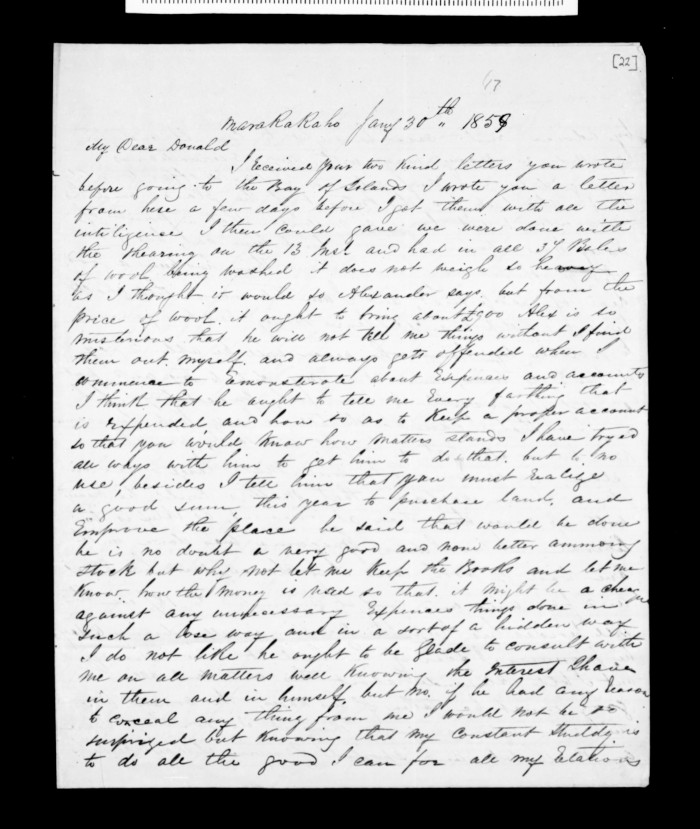 [22]
17
Maraekakaho Jany 30th 1859
My Dear Donald
I Received your two kind letters you wrote
before going to the Bay of Islands I wrote you a letter
from here a few days before I got them with all the
intiligence I then could gave we were done with
the shearing on the 13 Inst and had in all 37 Bales
of wool being washed it does not weigh so heavy
as I thought it would so Alexander says. but from the
price of wool. it ought to bring about £900 Alex is so
misterious that he will not tell me things without I find
them out. myself. and always gets offended when I
commence to Remonsterate about Expences and accounts
I think that he aught to tell me Every farthing that
is Expended, and how so as to Keep a proper account
so that you would know how matters stands I have tryed
all ways with him to get him to do that. but to no
use, besides I tell him that you must Realize
a good sum, this year to purchase land, and
Emprove the place he said that would be done
he is no doubt a very good and none better ammong
stock but why not let me Keep the Books and let me
Know. how the money is used so that. it might be a check
against any unnecessary Expences things done in
such a lose way and in a sort of a hidden way
I do not like he ought to be Glade to consult with
me on all matters well Knowing the Interest I have
in them and in himself. but no. if he had any Reason
to conceal any thing from me I would not be so
surprized but Knowing that my constant Studdy is
to do all the good I can for all my Relations